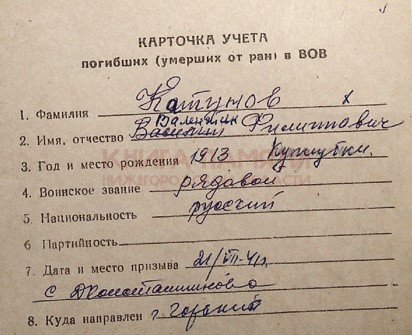 КАРТОЧКА УЧЕТА
погибших (умерших от ран) в ВОВ
1. Фамилия Катунов х
2. Имя, отчество Валентин Филиппович
3. Год и место рождения 1913
КНИГА ПАМЯТИ
НИЖЕГОРОДСКОЙ ОБЛАСТИ
4. Воинское звание рядовой
5. Национальность русский
6. Партийность
7. Дата и место призыва 21/VII-41г.
с
8. Куда направлен г. Горький